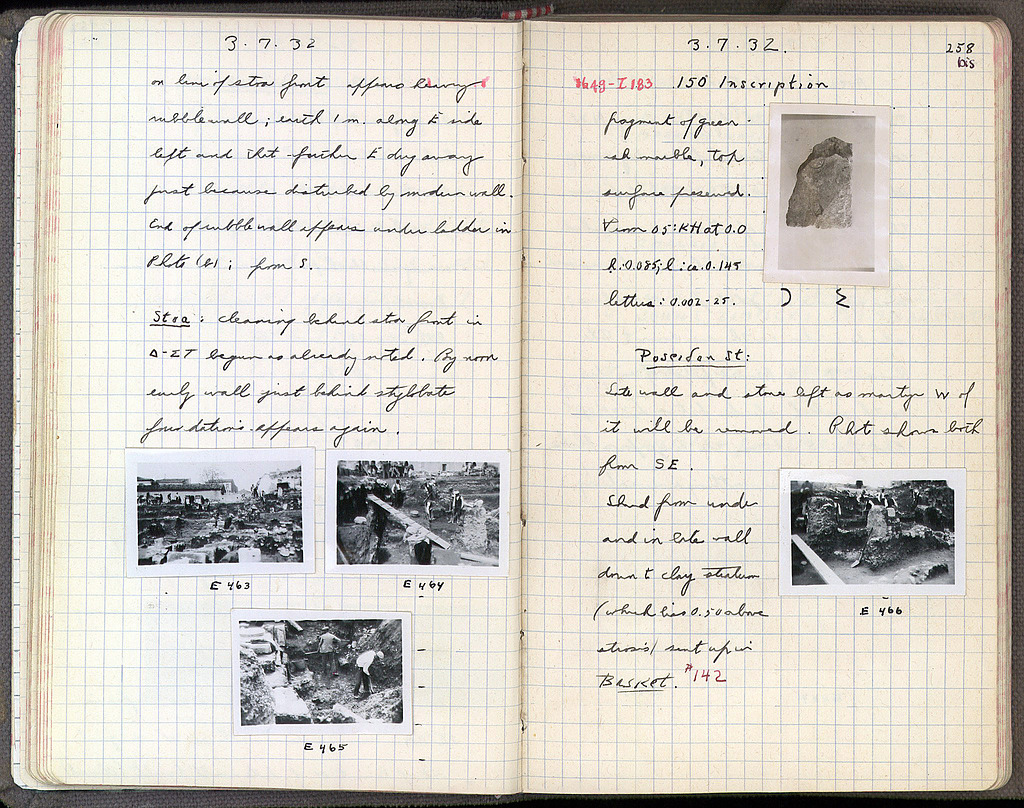 3.7.32
on line of stoa front appears heavy
rubble wall; earth 1 m. along E side
left and that further E dug away
just because disturbed by modern wall.
End of rubble wall appears under ladder in
Photo (b); from S.
Stoa: cleaning behind stoa front in
Δ-ΣΤ begun as already noted. By noon
early wall just behind stylobate
foundations appears again.
E 463
E 464
E 465
3.7.32.
258
bis
I 183 150 Inscription
fragment of green-
ish marble, top
surface preserved.
From 05:KH at 0.0
h.:0.085; l: ca. 0.145
letters: 0.002-25.
Ɔ Σ
Poseidon St:
Late wall and stone left as martyr W of
it will be removed. Phot shows both
from SE.
Sherd from under
and in late wall
down to clay stratum
(which lies 0.50 above
strosis) sent up in
Basket. #142
E 466